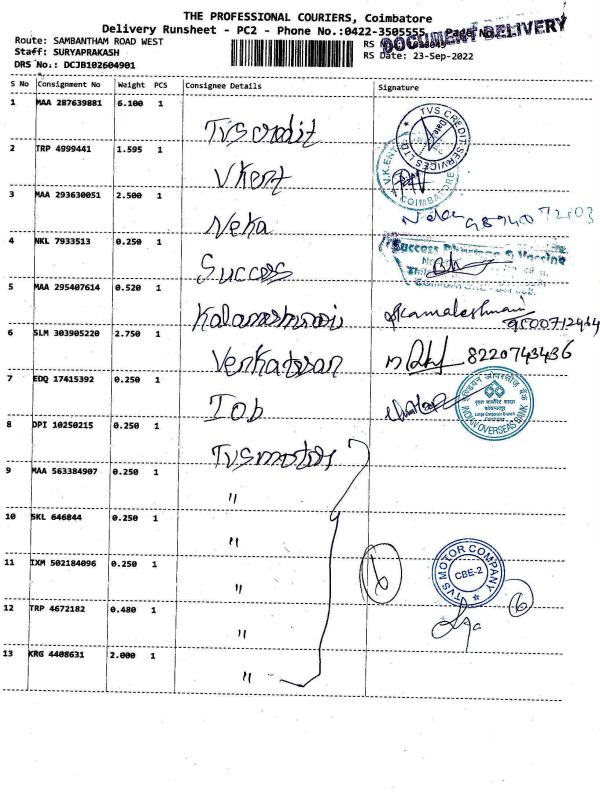 THE PROFESSIONAL COURIERS, Coimbatore
Delivery Runsheet - PC2 - Phone No.:0422-3505555 Page No
DOCUMENT DELIVERY
Route: SAMBANTHAM ROAD WEST
RS
Staff: SURYAPRAKASH
RS Date: 23-Sep-2022
DRS No.: DCJB102604901
S No Consignment No Weight PCS Consignee Details Signature
1 MAA 287639881 6.100 1 TVS credit
TVS CREDIT SERVICES LTD
2 TRP 4999441 1.595 1 V Kent
V.K.ENT
COIMBATORE
3 MAA 293630051 2.500 1 Neka
4 NKL 7933513 0.250 1 Success
Success Pharma & Vaccine
5 MAA 295407614 0.520 1
9500712434
6 SLM 303905220 2.750 1 Venkatesan 8220743436
7 EDQ 17415392 0.250 1 Iob
इंडियन ओवरसीज़ बैंक
INDIAN OVERSEAS BANK
8 DPI 10250215 0.250 1 TVS motors
9 MAA 563384907 0.250 1 "
10 SKL 646844 0.250 1 "
11 IXM 502184096 0.250 1 " 6
TVS MOTOR COMPANY
CBE-2
12 TRP 4672182 0.480 1 " 6
13 KRG 4408631 2.000 1 "